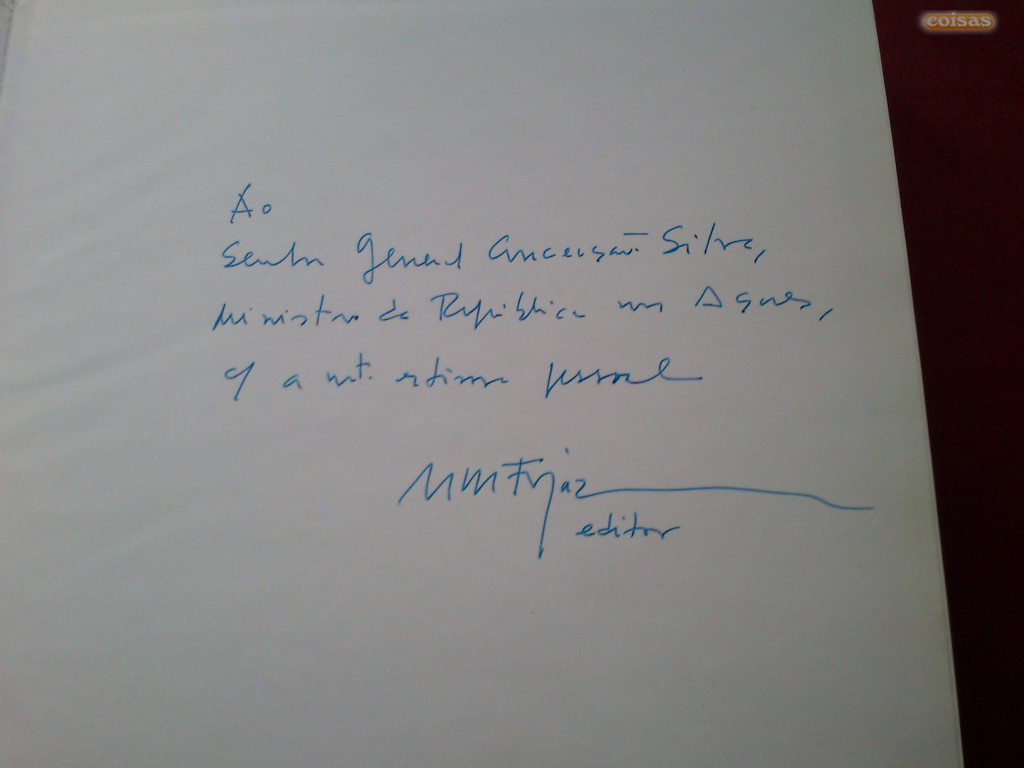 coisas
Ao
Senhor General Conceição Silva,
Ministro da República nos Açores,
c/ a mt. estima pessoal
editor